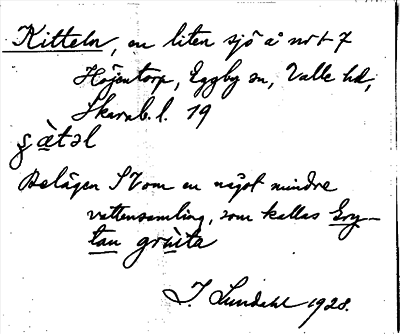 Kitteln, en liten sjö å nr 6-7
Höjentorp, Eggby sn, Valle hd,
Skarab. l. 19
Belägen SV om en något mindre
vattensamling, som kallas Gry-
tan
I. Lundahl 1928.